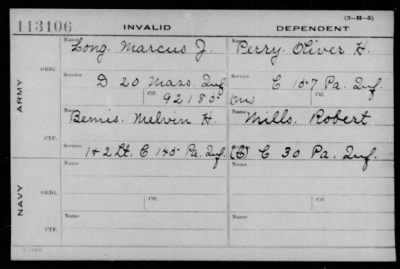 113106 INVALID DEPENDENT (3-H-5)
Name Long. Marcus J. Name Perry. Oliver H.
ORIG. Service D 20 Mass Inf. Service C 157 Pa. Inf.
Ctf. 92185 Ctf.
ARMY
Name Bemis. Melvin H. Name Mills. Robert
CTF. Service 1 & 2 Lt. C 145 Pa. Inf. C 30 Pa. Inf.
Name Name
ORIG. Ctf. Ctf.
NAVY
Name Name
CTF.